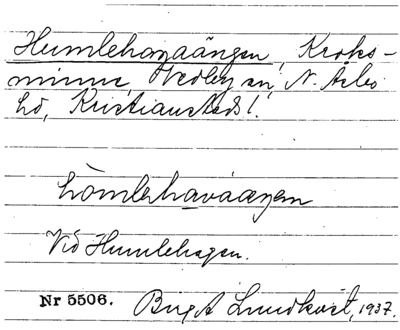 Humlehagaängen, Kroks-
minne, Vedby sn, N. Åsbo
hd, Kristianstads l.
hòmlehavááɲen
Vid Humlehagen.
Nr 5506. Birgit Lundkvist, 1937.